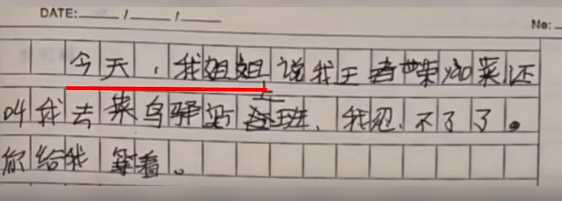 DATE: / /
No:
今天，我姐姐说我王者荣耀菜还
叫我去菜鸟驿站上班，我忍不了了。
你给我等着。